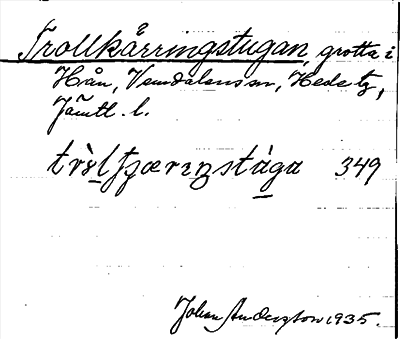 Trollkårringstugan, grotta i
Hån, Vemdalens sn, Hede tg,
Jämtl. l.
trèltjæriŋstága 349
Johan Anderzson 1935.